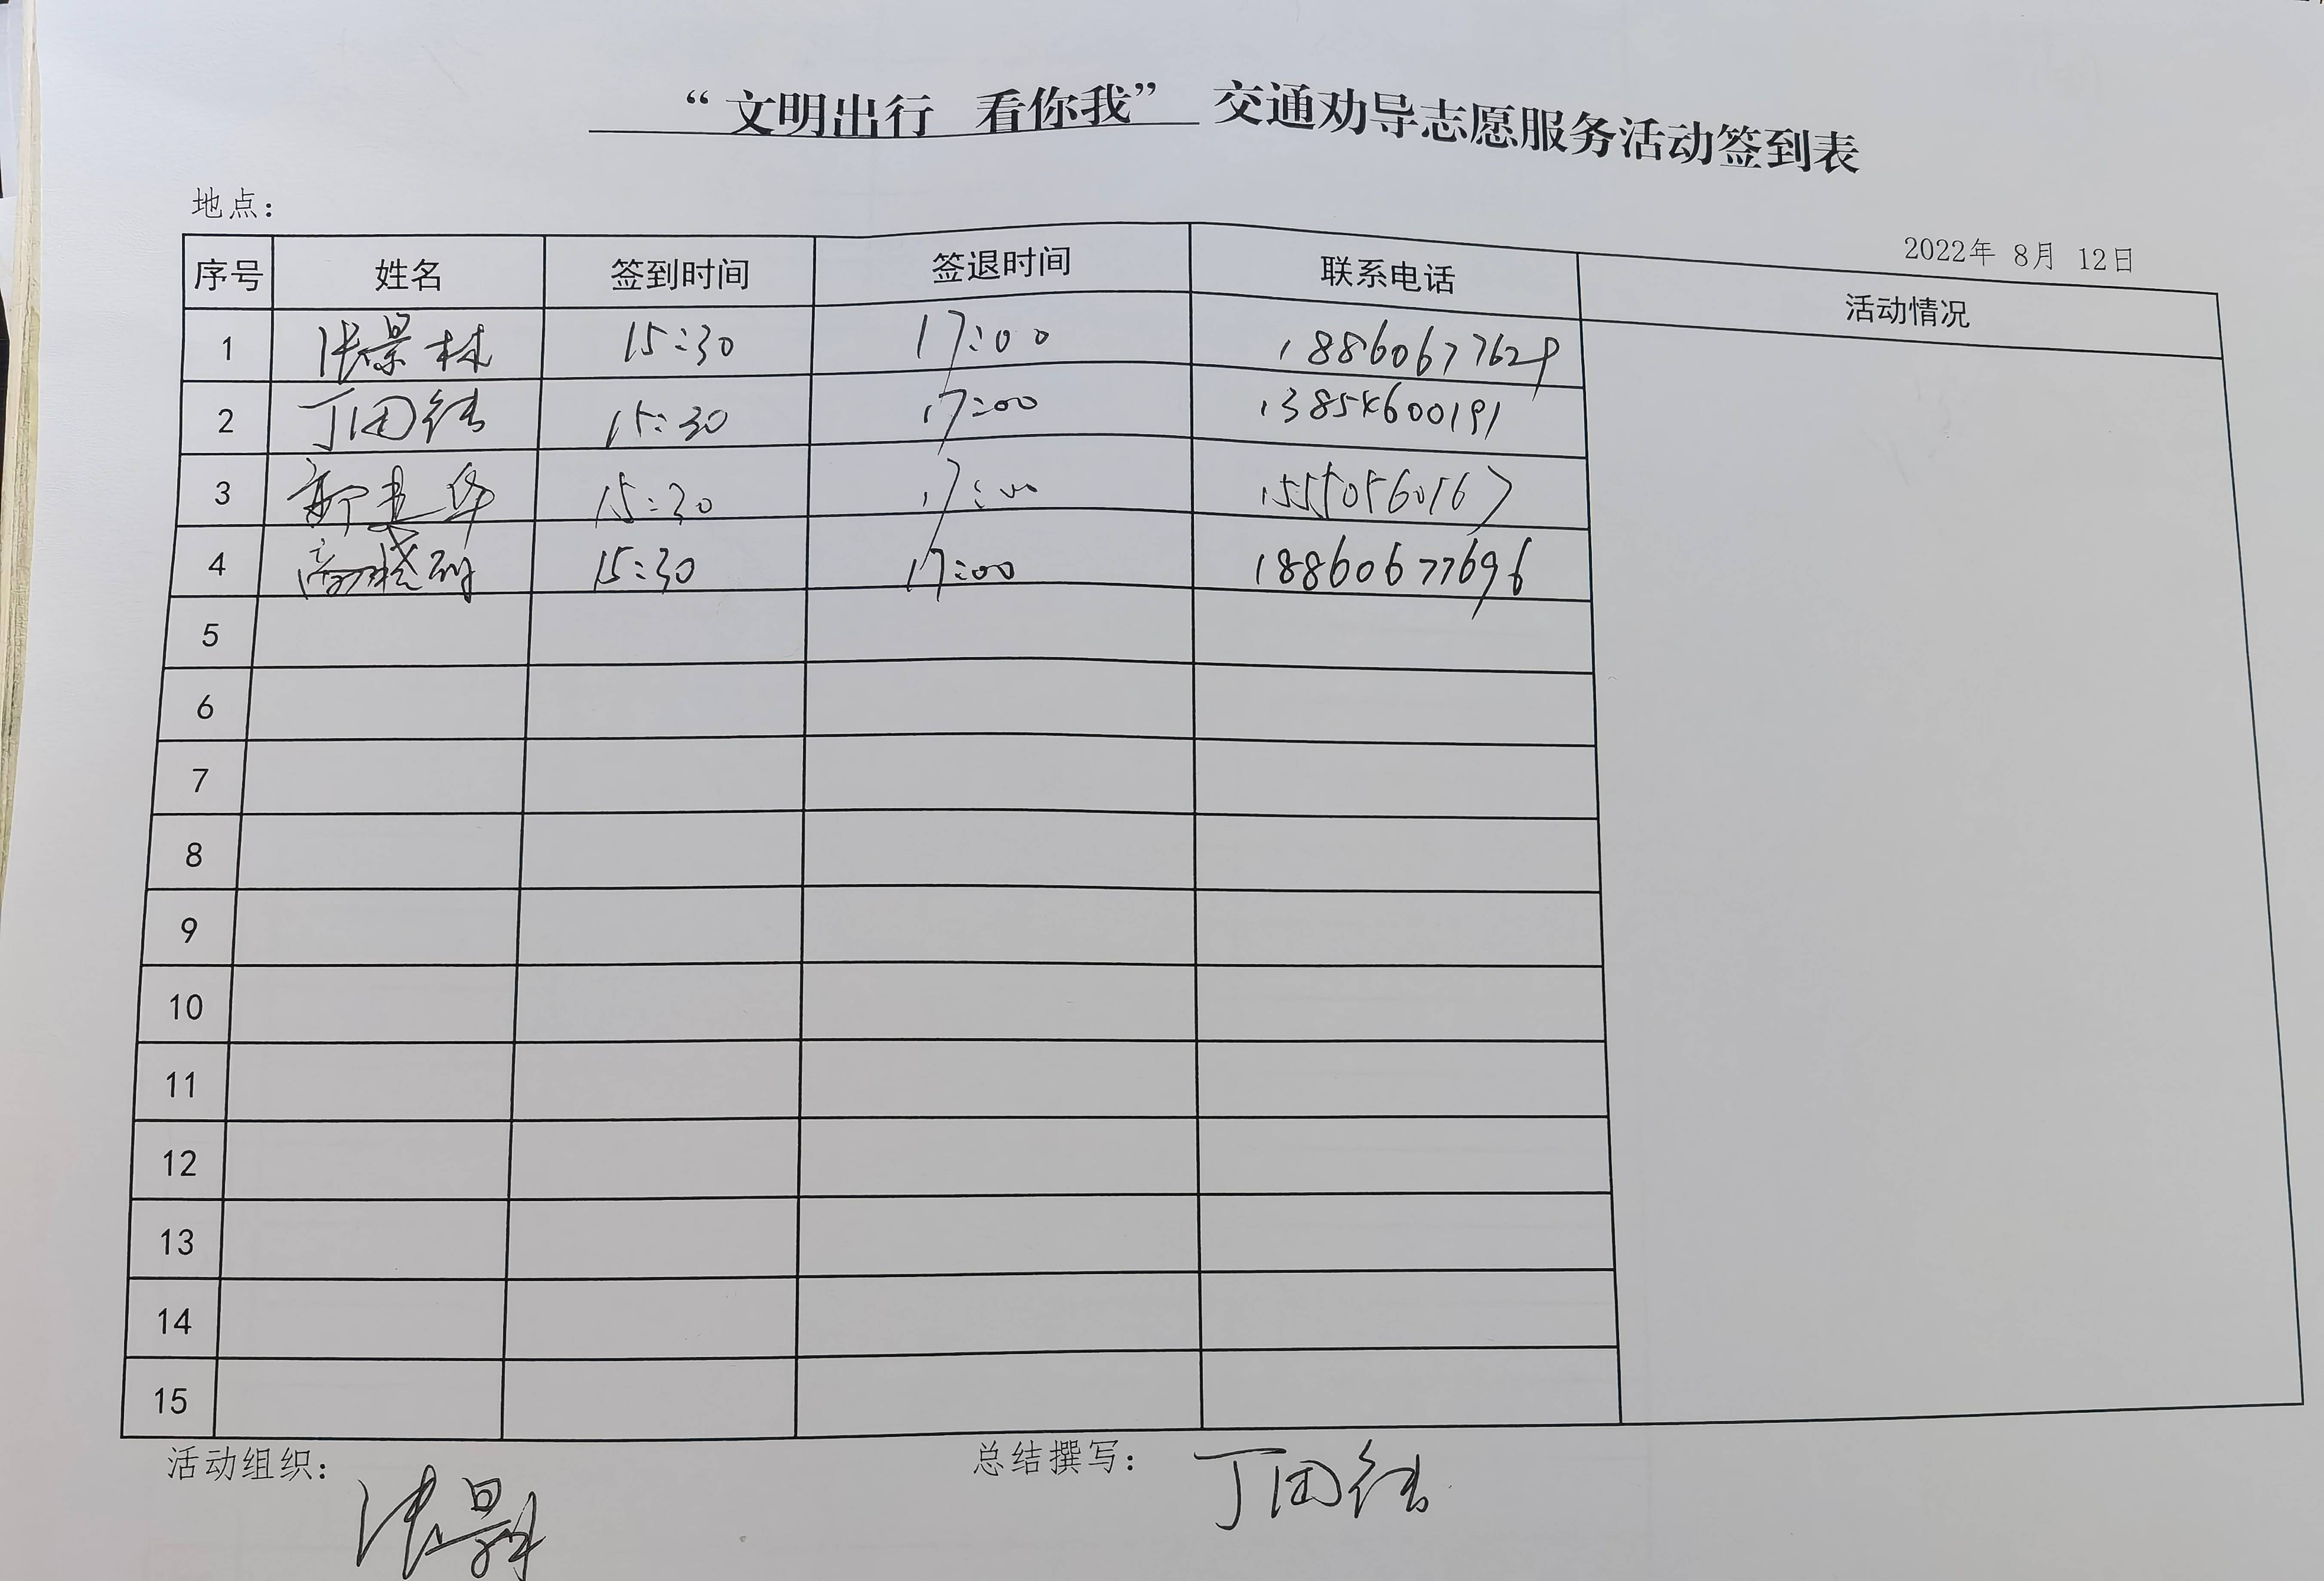 “文明出行 看你我” 交通劝导志愿服务活动签到表
地点：
2022年 8月 12日
序号 姓名 签到时间 签退时间 联系电话 活动情况
1 张景林 15:30 17:00 18860677629
2 丁国鋒 15:30 17:00 13854600191
3 15:30 17:00 15550560167
4 15:30 17:00 18860677696
5
6
7
8
9
10
11
12
13
14
15
活动组织： 总结撰写：